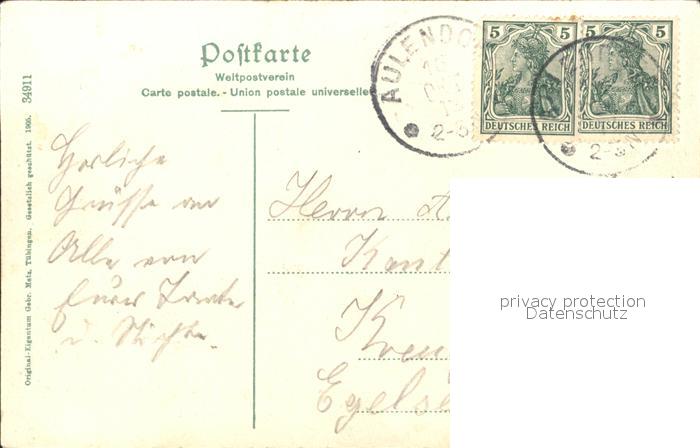 Postkarte
Weltpostverein
Carte postale. - Union postale universelle
34911
Original-Eigentum Gebr. Metz, Tübingen. Gesetzlich geschützt. 1905.
AULENDO
2-5
5 5
DEUTSCHES REICH
5 5
DEUTSCHES REICH
2-5N
Herzliche
Grüsse an
Alle von
Eurer Tante
u.
Herrn A.
Kant
Egels
privacy protection
Datenschutz